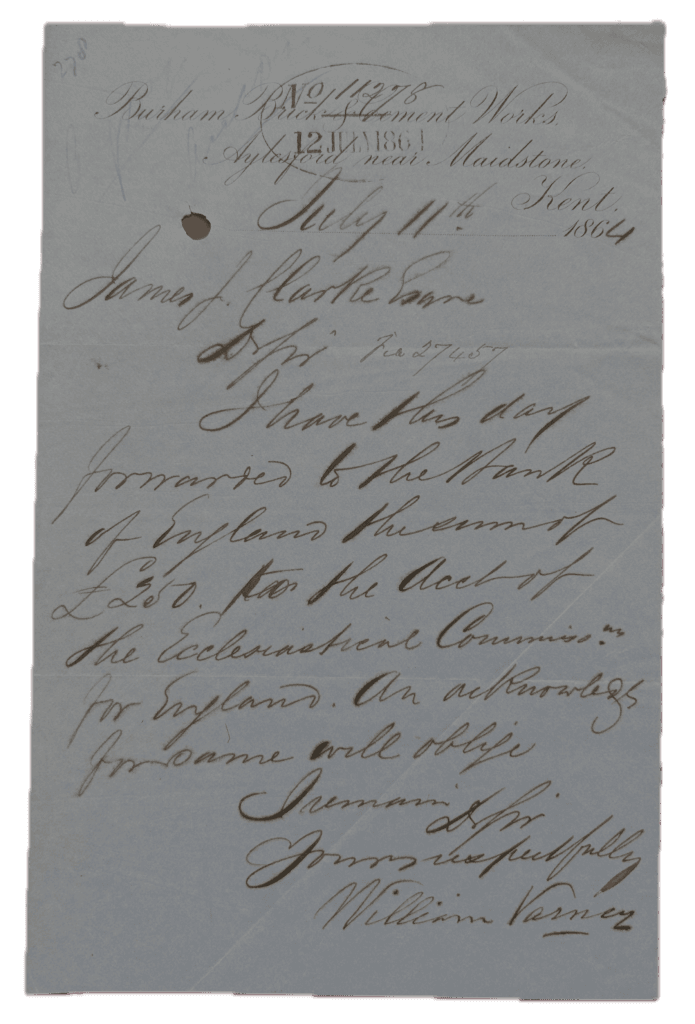 278
No 11278
Burham Brick & Cement Works.
12 JUL 1864
Aylesford near Maidstone.
Kent.
July 11th 1864
James J. Clarke Esqre
Dr Sir
27457
I have this day
forwarded to the Bank
of England the sum of
£250. to the Acct of
the Ecclesiastical Commissnrs
for England. An acknowledgt
for same will oblige
I remain Dr Sir
Yours respectfully
William Varney